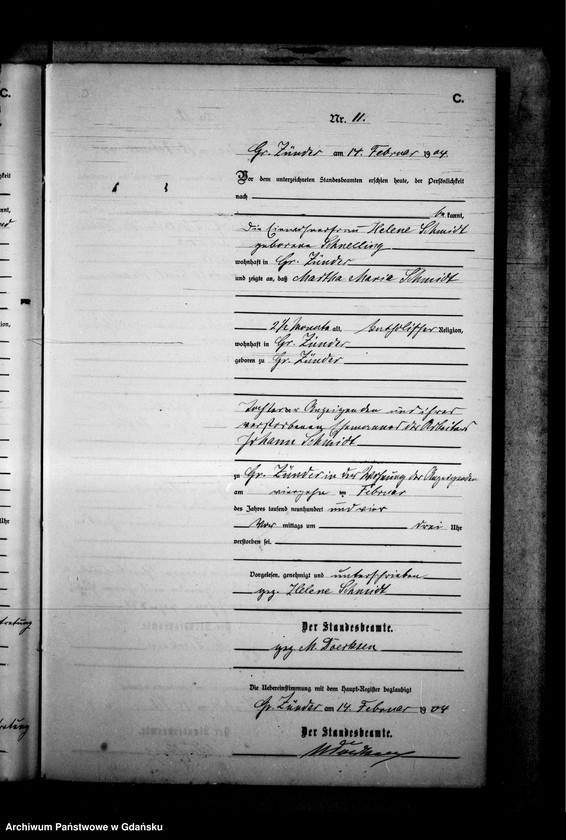 C.
C.
Nr. 11.
Gr. Zünder am 14. Februar 1904.
Vor dem unterzeichneten Standesbeamten erschien heute, der Persönlichkeit
nach
bekannt,
die Einwohnerfrau Helene Schmidt
geborene Schnelling
wohnhaft in Gr. Zünder
und zeigte an, daß Martha Maria Schmidt
2½ Monate alt, katholischer Religion,
wohnhaft in Gr. Zünder
geboren zu Gr. Zünder
Tochter der Anzeigenden und ihres
verstorbenen Ehemannes des Arbeiters
Johann Schmidt
zu Gr. Zünder in der Wohnung der Anzeigenden
am vierzehn ten Februar
des Jahres tausend neunhundert und vier
Vor mittags um drei Uhr
verstorben sei.
Vorgelesen, genehmigt und unterschrieben
gez. Helene Schmidt
Der Standesbeamte.
gez. M. Doerksen
Die Uebereinstimmung mit dem Haupt-Register beglaubigt
Gr. Zünder am 14. Februar 1904
Der Standesbeamte.
MDoerksen
Archiwum Państwowe w Gdańsku